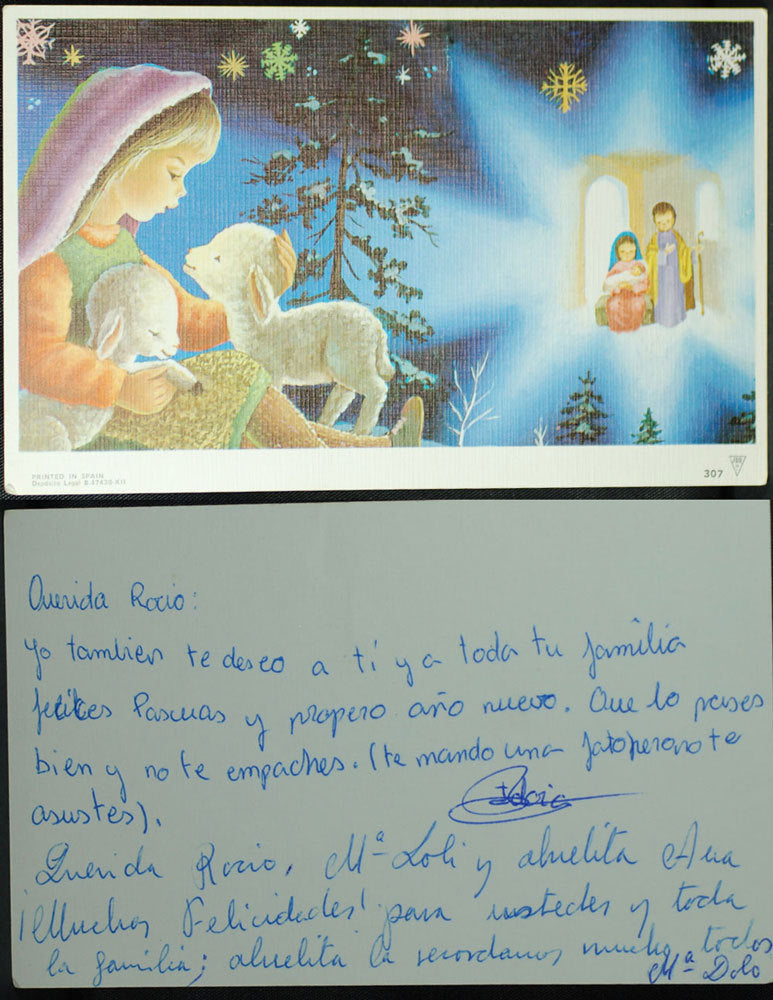 PRINTED IN SPAIN
Depósito Legal B.47430-XII
307
Querida Rocio:
Yo tambien te deseo a tí y a toda tu familia
felices Pascuas y propero año nuevo. Que lo pases
bien y no te empaches. (te mando una foto pero no te
asustes).
Querida Rocio, Mª Loli y abuelita Ana
¡Muchas Felicidades! para ustedes y toda
la familia; abuelita la recordamos mucho todos
Mª Dolo